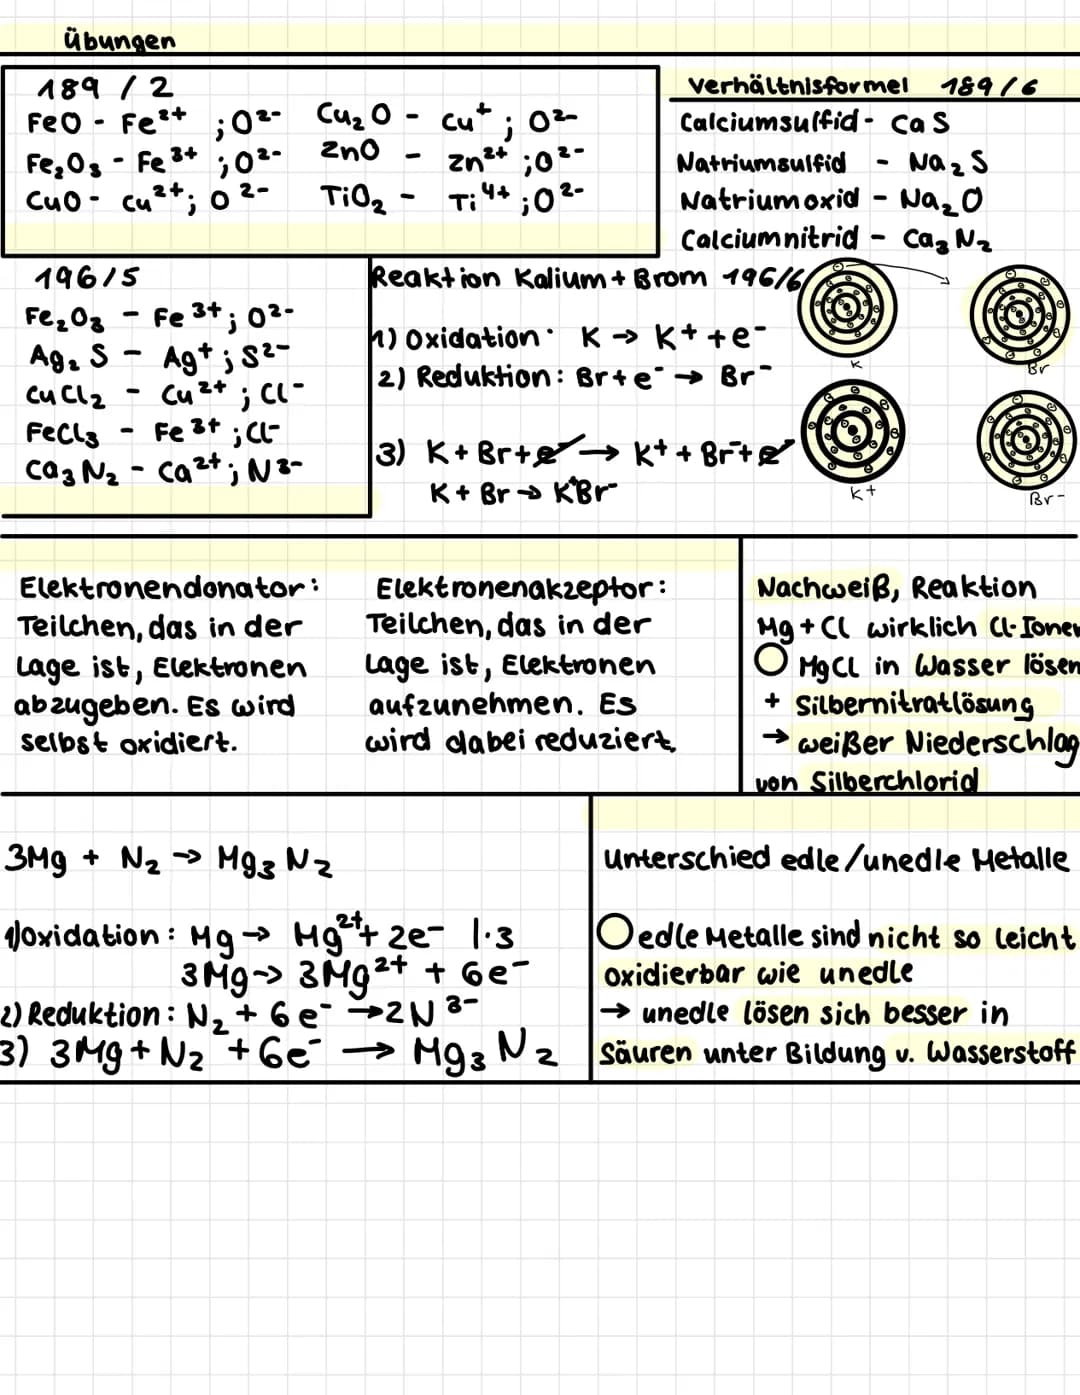 Übungen
189 / 2
FeO - Fe²⁺ ; O²⁻
Fe₂O₃ - Fe³⁺ ; O²⁻
CuO - Cu²⁺ ; O²⁻
Cu₂O - Cu⁺ ; O²⁻
ZnO - Zn²⁺ ; O²⁻
TiO₂ - Ti⁴⁺ ; O²⁻
Verhältnisformel 189/6
Calciumsulfid - CaS
Natriumsulfid - Na₂S
Natriumoxid - Na₂O
Calciumnitrid - Ca₃N₂
196/5
Fe₂O₃ - Fe³⁺ ; O²⁻
Ag₂S - Ag⁺ ; S²⁻
CuCl₂ - Cu²⁺ ; Cl⁻
FeCl₃ - Fe³⁺ ; Cl⁻
Ca₃N₂ - Ca²⁺ ; N³⁻
Reaktion Kalium + Brom 196/6
1) Oxidation: K → K⁺ + e⁻
2) Reduktion: Br + e⁻ → Br⁻
3) K + Br + e⁻ → K⁺ + Br⁻ + e⁻
K + Br → K⁺Br⁻
K
Br
K+
Br-
Elektronendonator:
Teilchen, das in der
Lage ist, Elektronen
abzugeben. Es wird
selbst oxidiert.
Elektronenakzeptor:
Teilchen, das in der
Lage ist, Elektronen
aufzunehmen. Es
wird dabei reduziert.
Nachweiß, Reaktion
Mg + Cl wirklich Cl-Ionen
MgCl in Wasser lösen
+ Silbernitratlösung
→ weißer Niederschlag
von Silberchlorid
3Mg + N₂ → Mg₃N₂
1) Oxidation: Mg → Mg²⁺ + 2e⁻ |·3
3Mg → 3Mg²⁺ + 6e⁻
2) Reduktion: N₂ + 6e⁻ → 2N³⁻
3) 3Mg + N₂ + 6e⁻ → Mg₃N₂
Unterschied edle/unedle Metalle
edle Metalle sind nicht so leicht
oxidierbar wie unedle
→ unedle lösen sich besser in
Säuren unter Bildung v. Wasserstoff